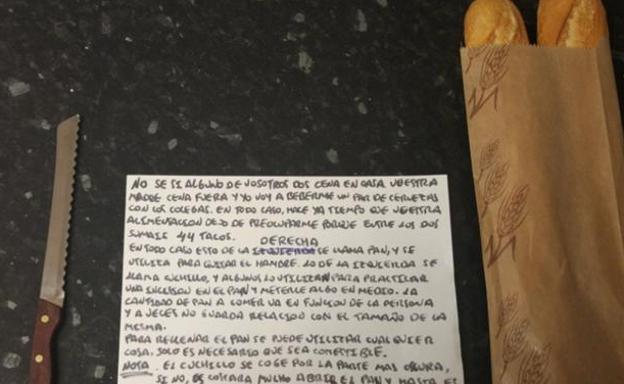 NO SE SI ALGUNO DE VOSOTROS DOS CENA EN CASA VUESTRA
MADRE CENA FUERA Y YO VOY A BEBERME UN PAR DE CERVEZAS
CON LOS COLEGAS. EN TODO CASO, HACE YA TIEMPO QUE VUESTRA
ALIMENTACION DEJO DE PREOCUPARME PORQUE ENTRE LOS DOS
SUMAIS 44 TACOS.
DERECHA
EN TODO CASO ESTO DE LA IZQUIERDA SE LLAMA PAN, Y SE
UTILIZA PARA QUITAR EL HAMBRE. LO DE LA IZQUIERDA SE
LLAMA CUCHILLO, Y ALGUNOS LO UTILIZAN PARA PRACTICAR
UNA INCISION EN EL PAN Y METERLE ALGO EN MEDIO. LA
CANTIDAD DE PAN A COMER VA EN FUNCION DE LA PERSONA
Y A VECES NO GUARDA RELACION CON EL TAMAÑO DE LA
MISMA.
PARA RELLENAR EL PAN SE PUEDE UTILIZAR CUALQUIER
COSA. SOLO ES NECESARIO QUE SEA COMESTIBLE.
NOTA. EL CUCHILLO SE COGE POR LA PARTE MAS OSCURA,
SI NO, OS COSTARA MUCHO ABRIR EL PAN Y HASTA EL